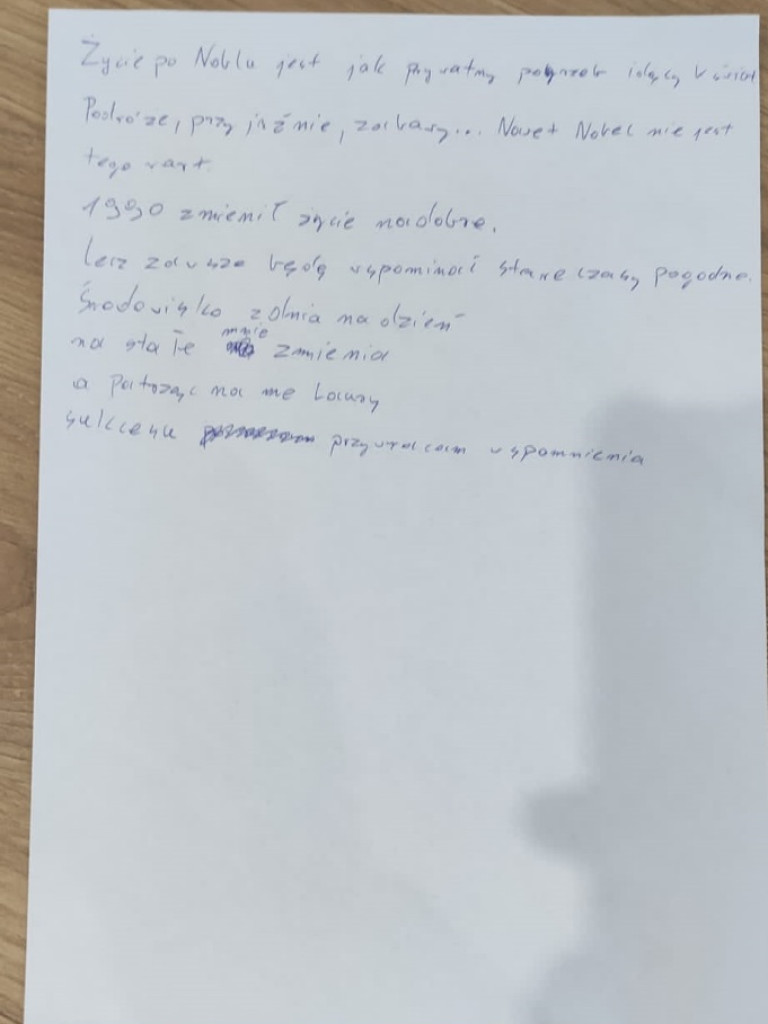 Życie po Noblu jest jak prywatny pogrzeb idący w świat
Podróże, przyjaźnie, zabawy... Nawet Nobel nie jest
tego wart.
1990 zmienił życie na dobre.
lecz zawsze będę wspominać stare czasy pogodne.
Środowisko z dnia na dzień
na stałe mnie zmienia
a patrząc na me
sukcesu przywracam wspomnienia